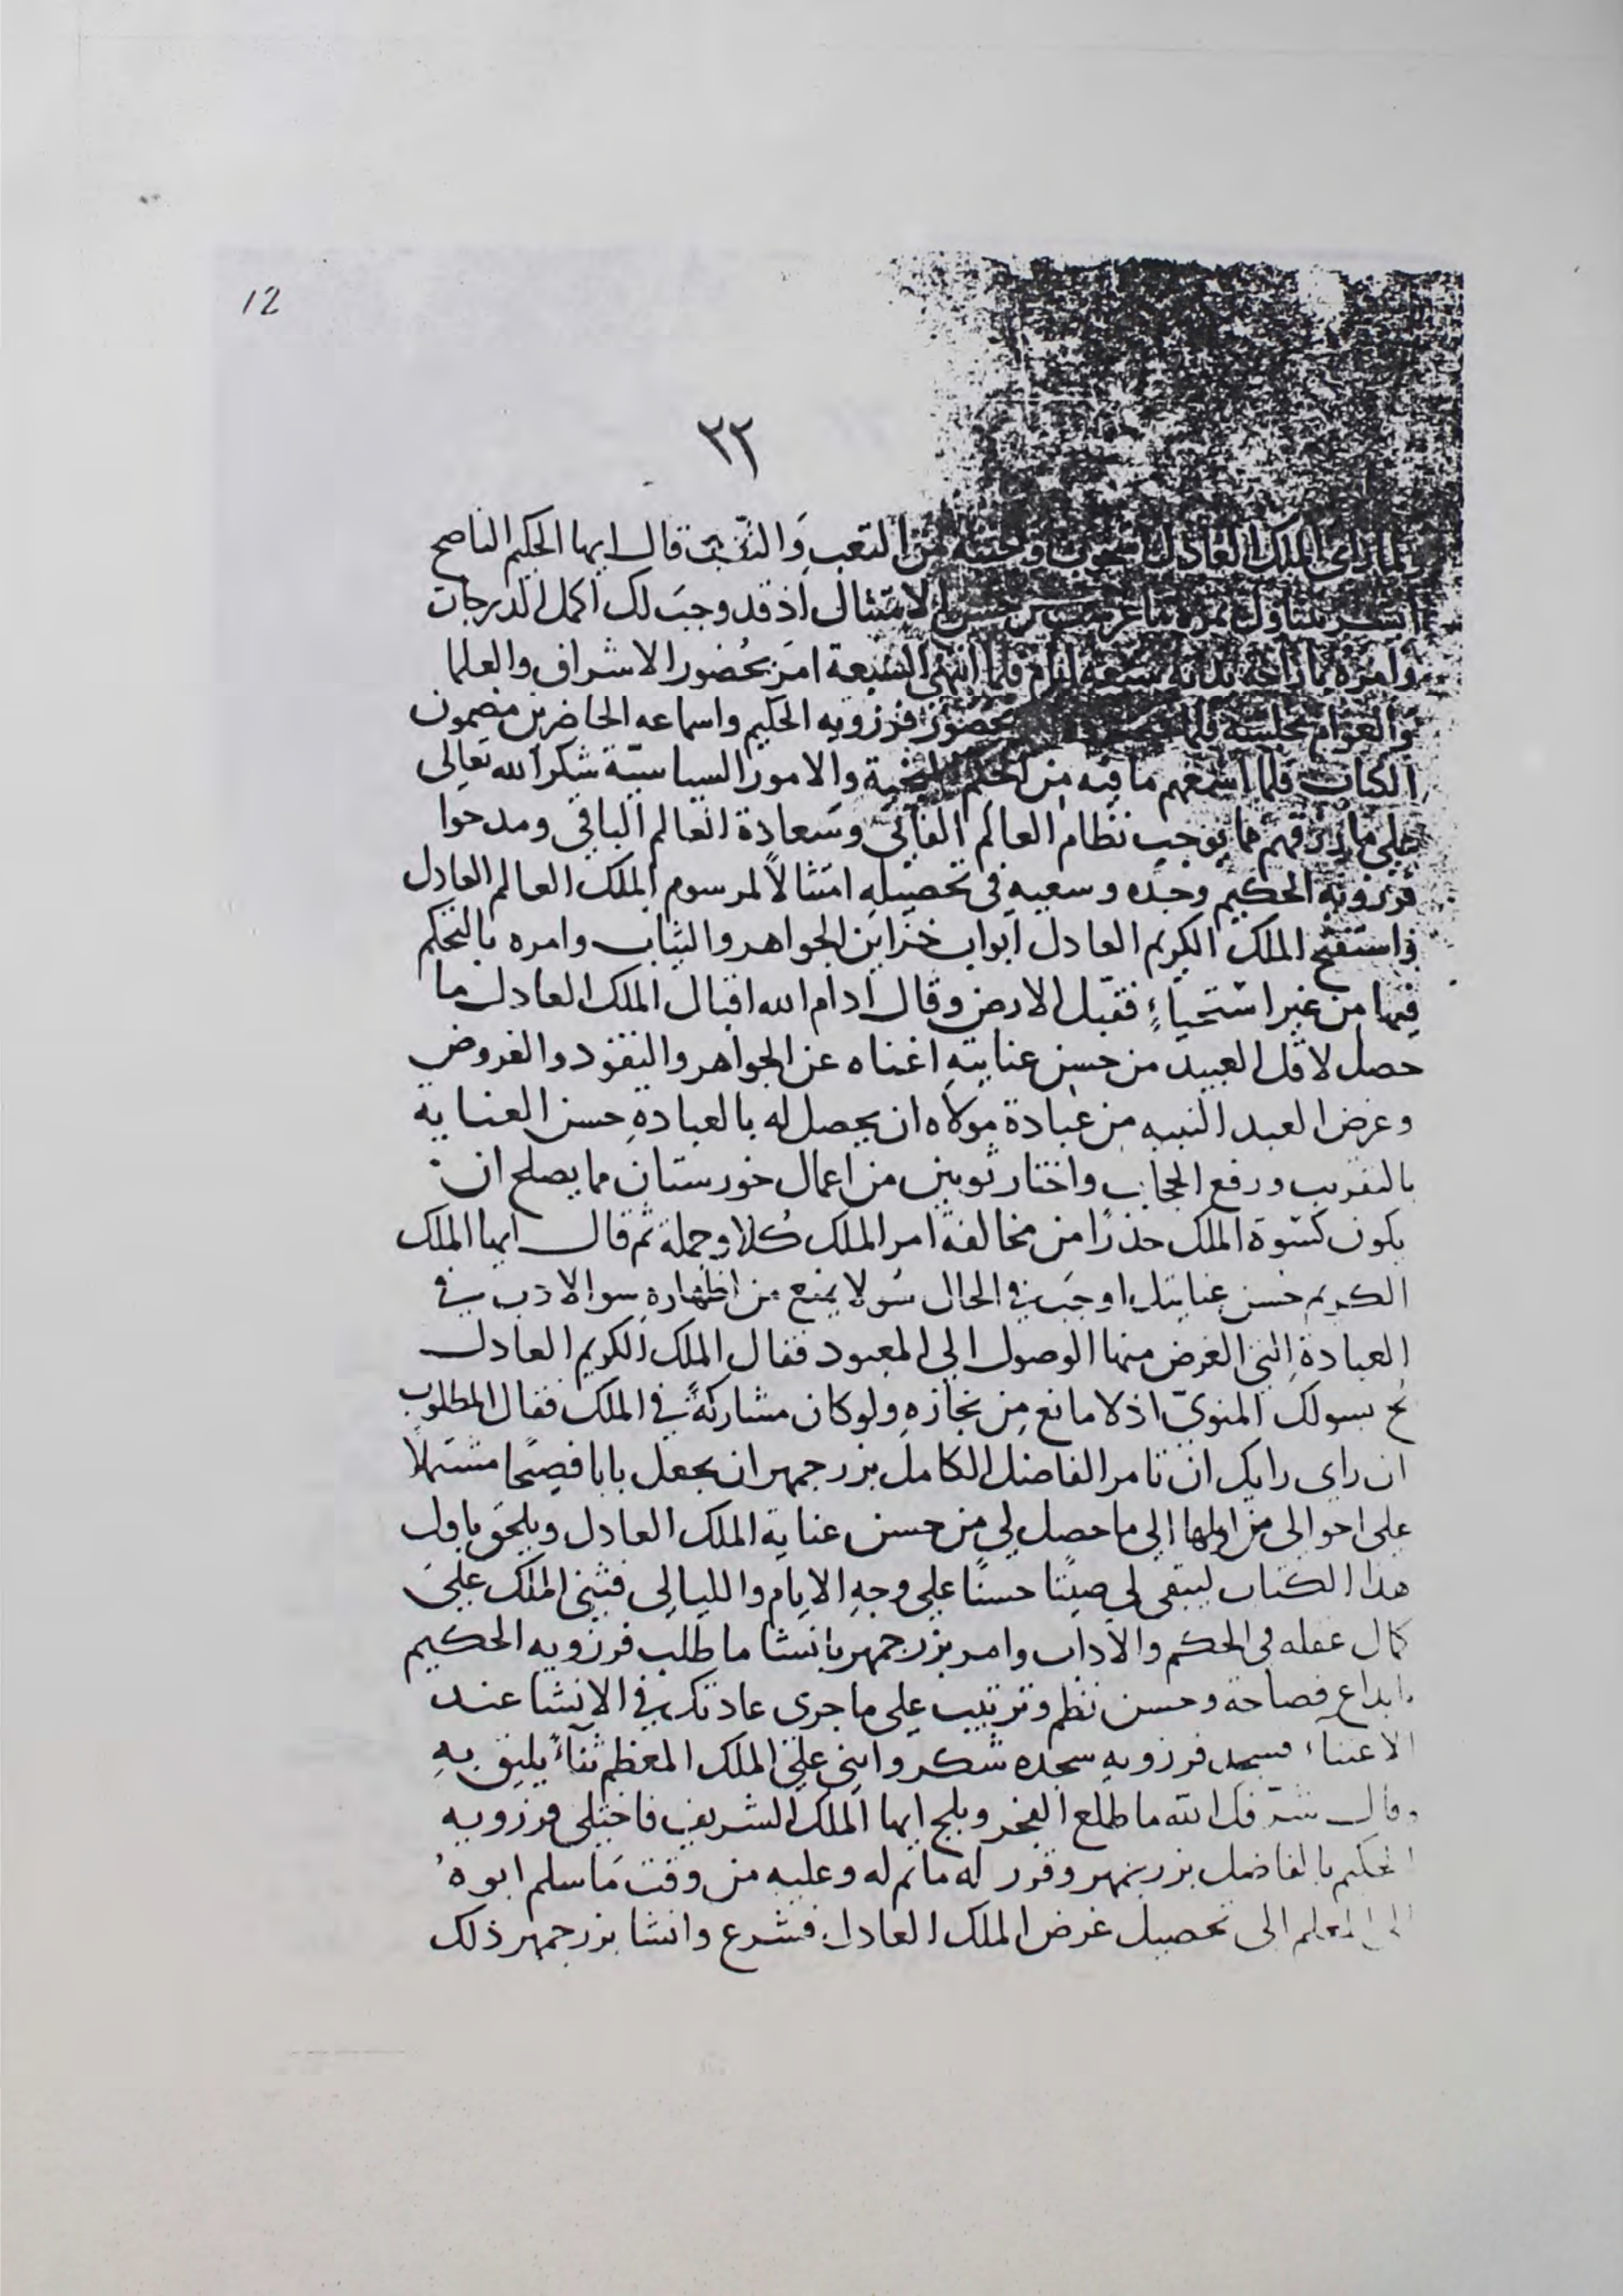 12
٢٢
ولما راى الملك العادل من التعب والنصب قال ايها الحكيم الناصح
ابشر بتناول ثمرة ما غرست من حسن الامتثال اذ قد وجبَ لك اكمل الدرجات
وامره باراحة بدنه سبعة ايام فلما انتهى السبعة امَر بحُضور الاشراف والعلما
والعوام مجلسَه فلما بحضور فرزويه الحكيم واسماعه الحاضرين مضمون
الكتاب فلما اسمعهم ما فيه من الحكم والامور السياسيّة شكرا لله تعالى
على ما رزقهم مما يوجب نظام العالم الفاني وسَعادة العالم الباقي ومدحوا
فرزويه الحكيم وجده وسعيه في تحصيله امتثالاً لمرسوم الملك العالم العادل
فاستفتح الملك الكريم العادل ابواب خزاين الجواهر والثياب وامره بالتحكم
فيها من غير استحياءٍ فقبّل الارض وقال ادام الله اقبال الملك العادل ما
حصل لاقل العبيد من حسن عنايتهِ اغناه عن الجواهر والنقود والغروض
وغرض العبد النبيه من عبادة مولاه ان يحصل له بالعبادةِ حسن العناية
بالتقريب ورفع الحجاب واختار ثوبين من اعمال خورستان مما يصلح ان
يكون كسوة الملك حذرًا من مخالفة امر الملك كُلا وجملة ثم قال ايها الملك
الكريم حسن عنايتك اوجَبَ في الحال سُولا يمنع من اظهارهِ سو الادب في
العبادةِ التي الغرض منها الوصول الي المعبود فقال الملك الكريم العادل
بُح بسولك المنويّ اذ لا مانع مِن نجازهِ ولو كان مشاركةً في الملك فقال المطلوب
ان راي رايك ان تامر الفاضل الكامل بزرجمهر ان يجعل بابا فصيحًا مشتملاً
على احوالى من اولها الي ما حصل لي من حسن عناية الملك العادل ويلحق باول
هذا الكتاب ليبقى لي صيتًا حسنًا علي وجهِ الايام والليالى فثنى الملك علىَ
كمال عقله في الحكم والاداب وامر بزرجمهر بانشا ما طلب فرزويه الحكيم
بابداع فصاحة وحسن نظم وترتيب على ما جرى عادتك في الانشا عند
الاعتناء فسجد فرزويهِ سجده شكر واثنى علىَ الملك المعظم ثناءً يليق بهِ
وقال شرّفك الله ما طلع الفجر وبلج ايها الملك الشريف فاختلى فرزويه
الحكيم بالفاضل بزرجمهر وقرر له ما تم له وعليه من وقت مَا سلم ابوهُ
الى المعلم الى تحصيل غرض الملك العادل فشرع وانشا بزرجمهر ذلك